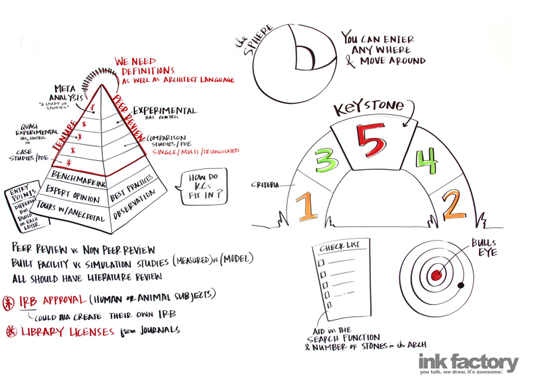 WE NEED
DEFINITIONS
AS WELL AS ARCHITECT LANGUAGE
META
ANALYSIS
"A STUDY OF STUDIES"
TENURE
PEER REVIEW
EXPERIMENTAL
HAS CONTROL
QUASI
EXPERIMENTAL
COMPARISON
STUDIES/POE
SINGLE/MULTI/TRIANGULATED
CASE
STUDIES/POE
BENCHMARKING
EXPERT OPINION
TOURS W/ANECDOTAL
BEST PRACTICES
OBSERVATION
ENTRY
POINTS
HOW DO
KCs
FIT IN?
PEER REVIEW vs NON PEER REVIEW
BUILT FACILITY vs SIMULATION STUDIES (MEASURED) vs (MODEL)
ALL SHOULD HAVE LITERATURE REVIEW
* IRB APPROVAL (HUMAN OR ANIMAL SUBJECTS)
COULD AIA CREATE THEIR OWN IRB
* LIBRARY LICENSES from JOURNALS
the SPHERE
YOU CAN ENTER
ANY WHERE
& MOVE AROUND
KEYSTONE
5
3
4
CRITERIA
1
2
CHECK LIST
AID in the
SEARCH FUNCTION
& NUMBER OF STONES in the ARCH
BULLS
EYE
ink factory
you talk. we draw. it's awesome.